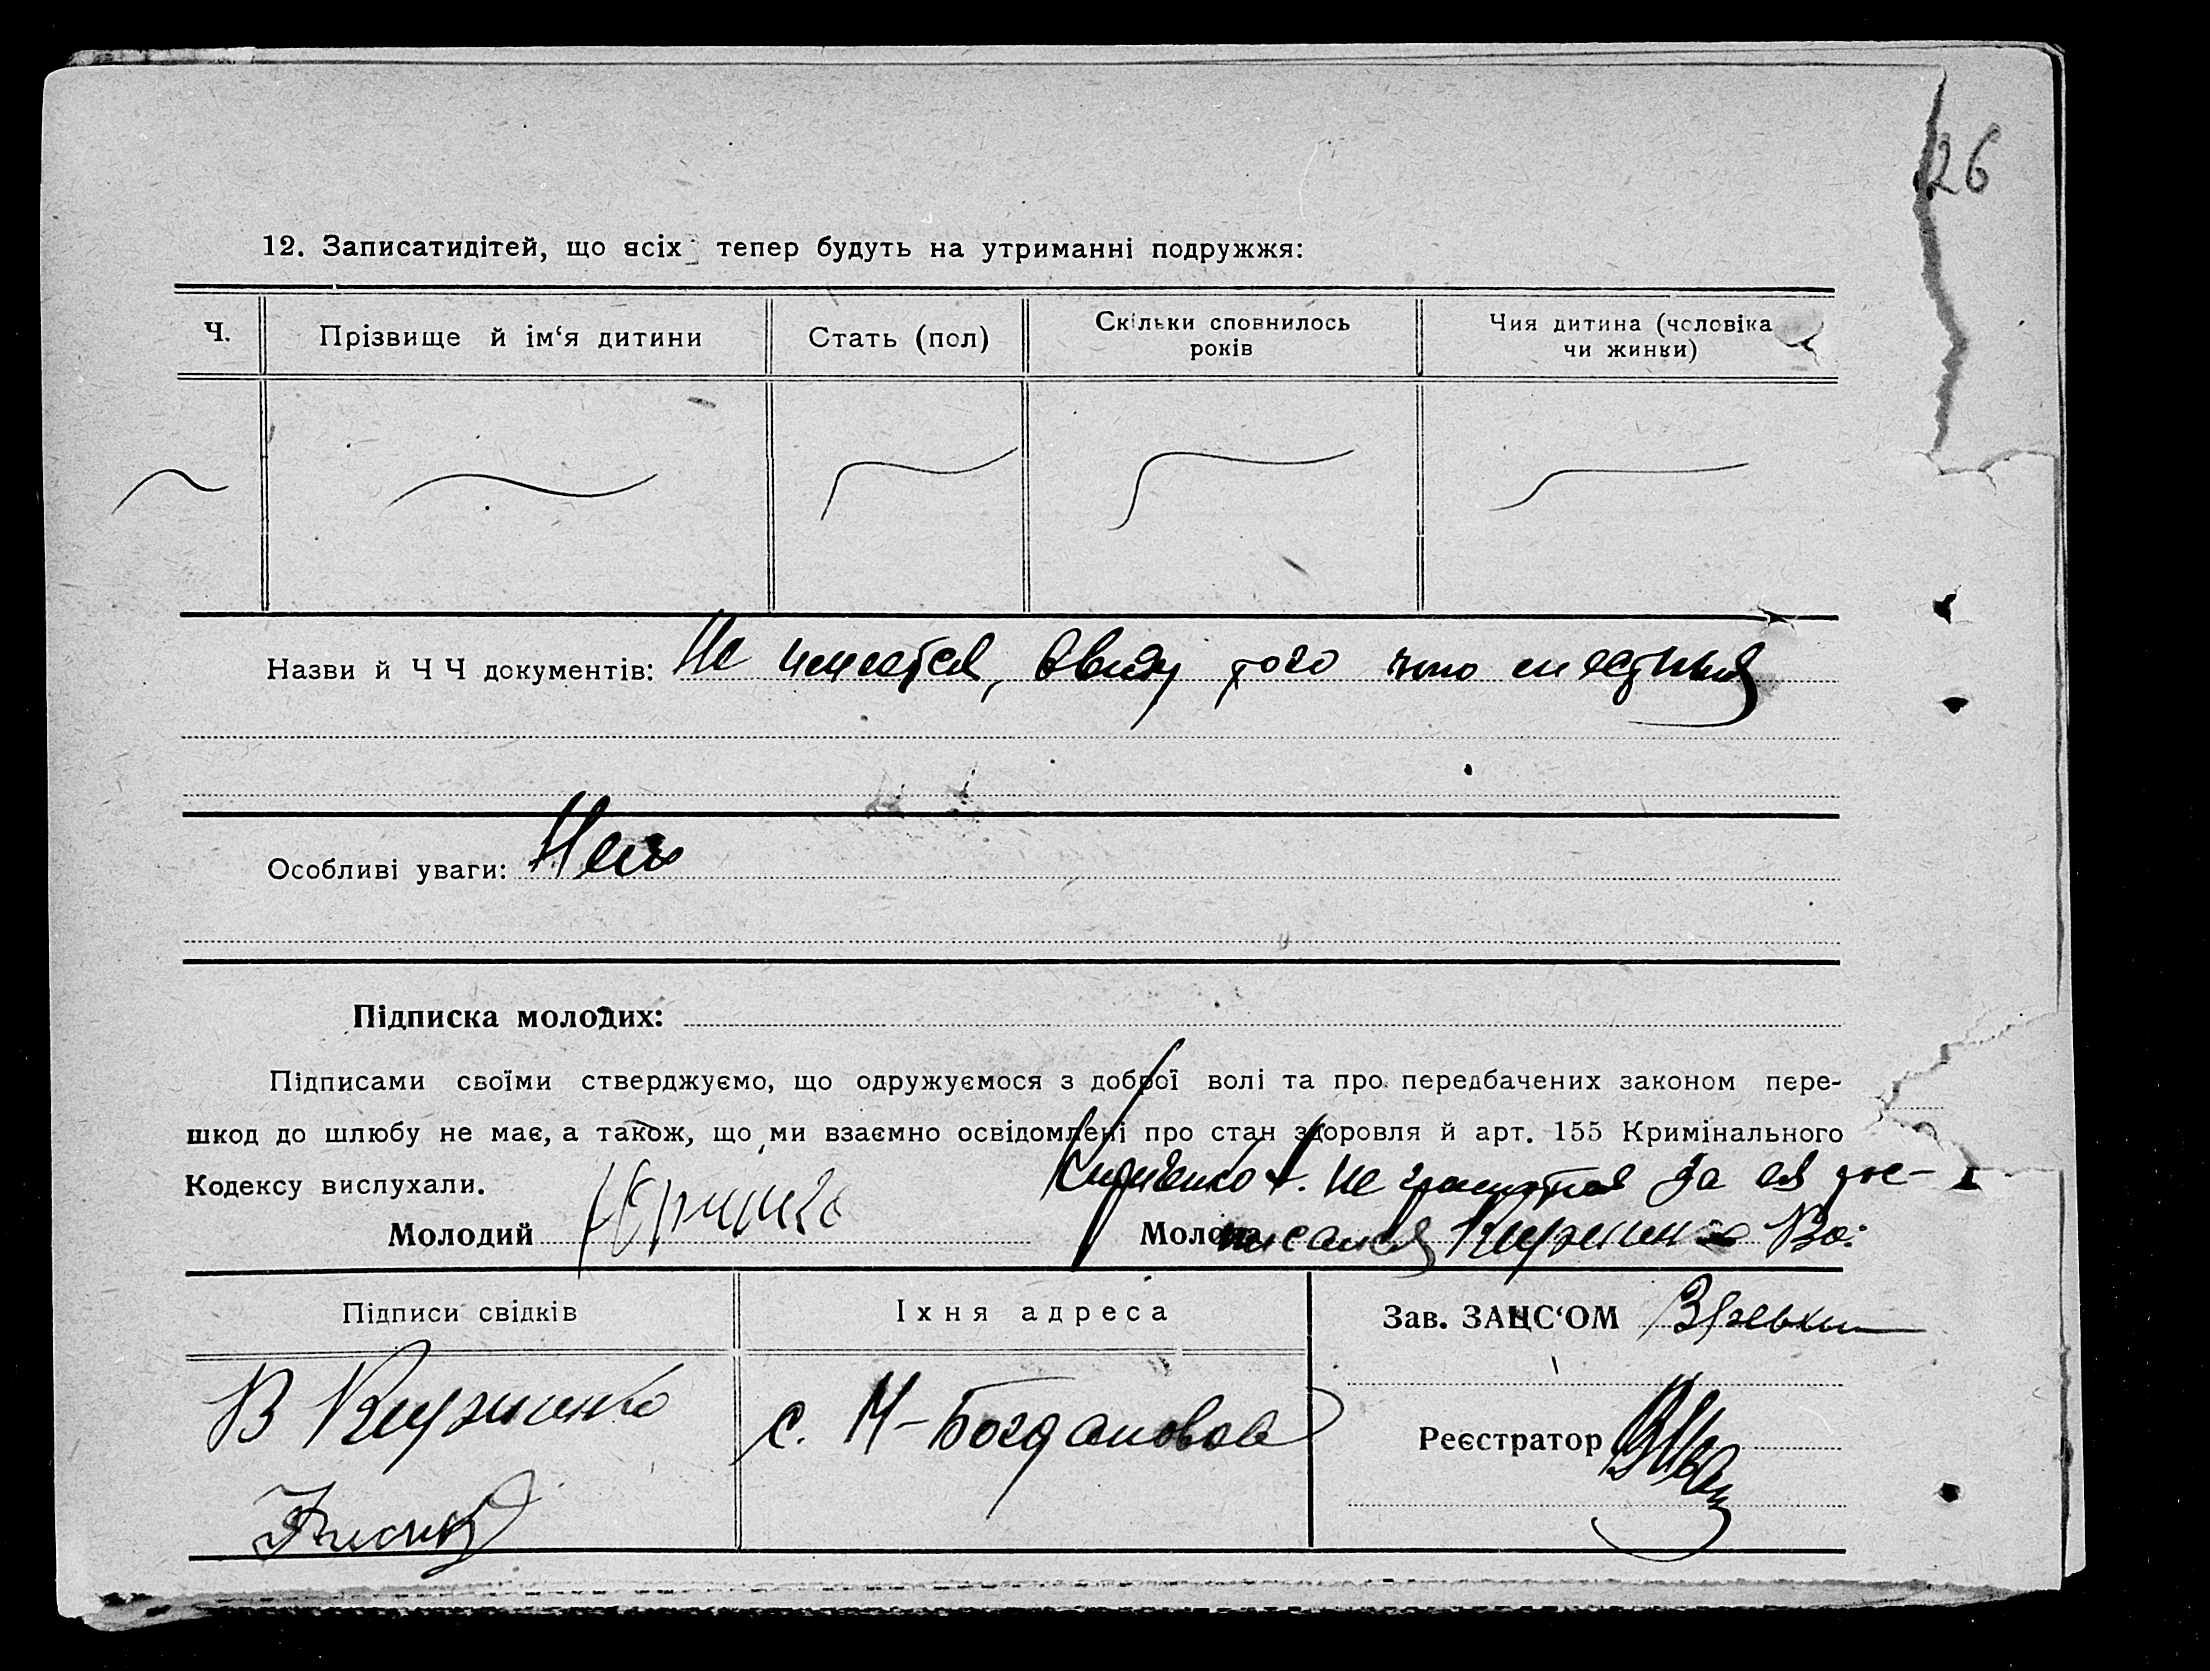 26
12. Записатидітей, що всіх тепер будуть на утриманні подружжя:
Ч. Прізвище й ім‘я дитини Стать (пол) Скільки сповнилось років Чия дитина (чоловіка чи жинки)
Назви й Ч Ч документів: Не имеется, ввиду того что местния
Особливі уваги: Нет
Підписка молодих:
Підписами своїми стверджуємо, що одружуємося з доброї волі та про передбачених законом пере-
шкод до шлюбу не має, а також, що ми взаємно освідомлені про стан здоровля й арт. 155 Кримінального
Кодексу вислухали.
не грамотная за ея рос-
Молодий Молода писался Кириенко
Підписи свідків Їхня адреса Зав. ЗАЦС‘ОМ
В Кириенко с. М-Богдановка
Реєстратор